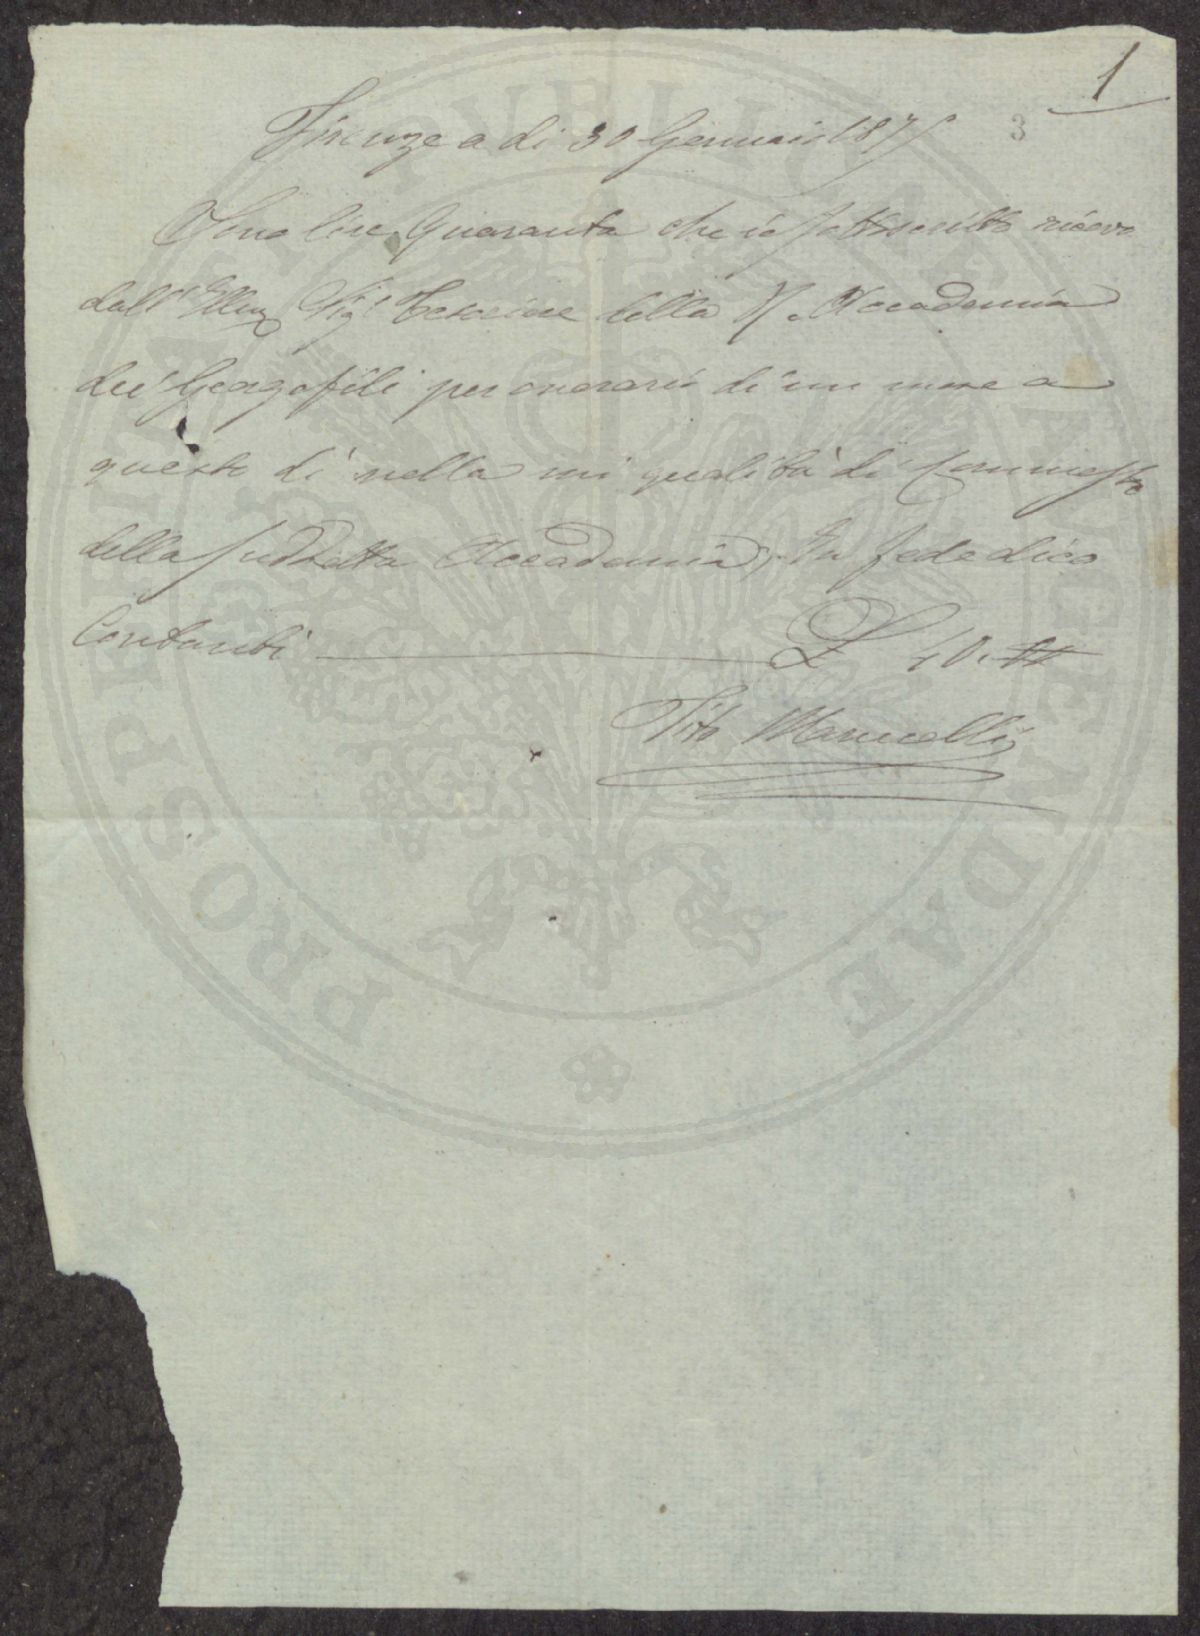 1
3
Firenze a di 30 Gennaio 187
Sono lire Quaranta che io sottoscritto ricevo
dall' Illmo Sigr Tesoriere della R. Accademia
dei Georgofili per onorario di un mese a
questo di nella mi qualità di Commesso
della suddetta Accademia, In fede dico
Contanti L 40.
Tito Marucelli
PROSPERITATI PVBLICAE AVGENDAE